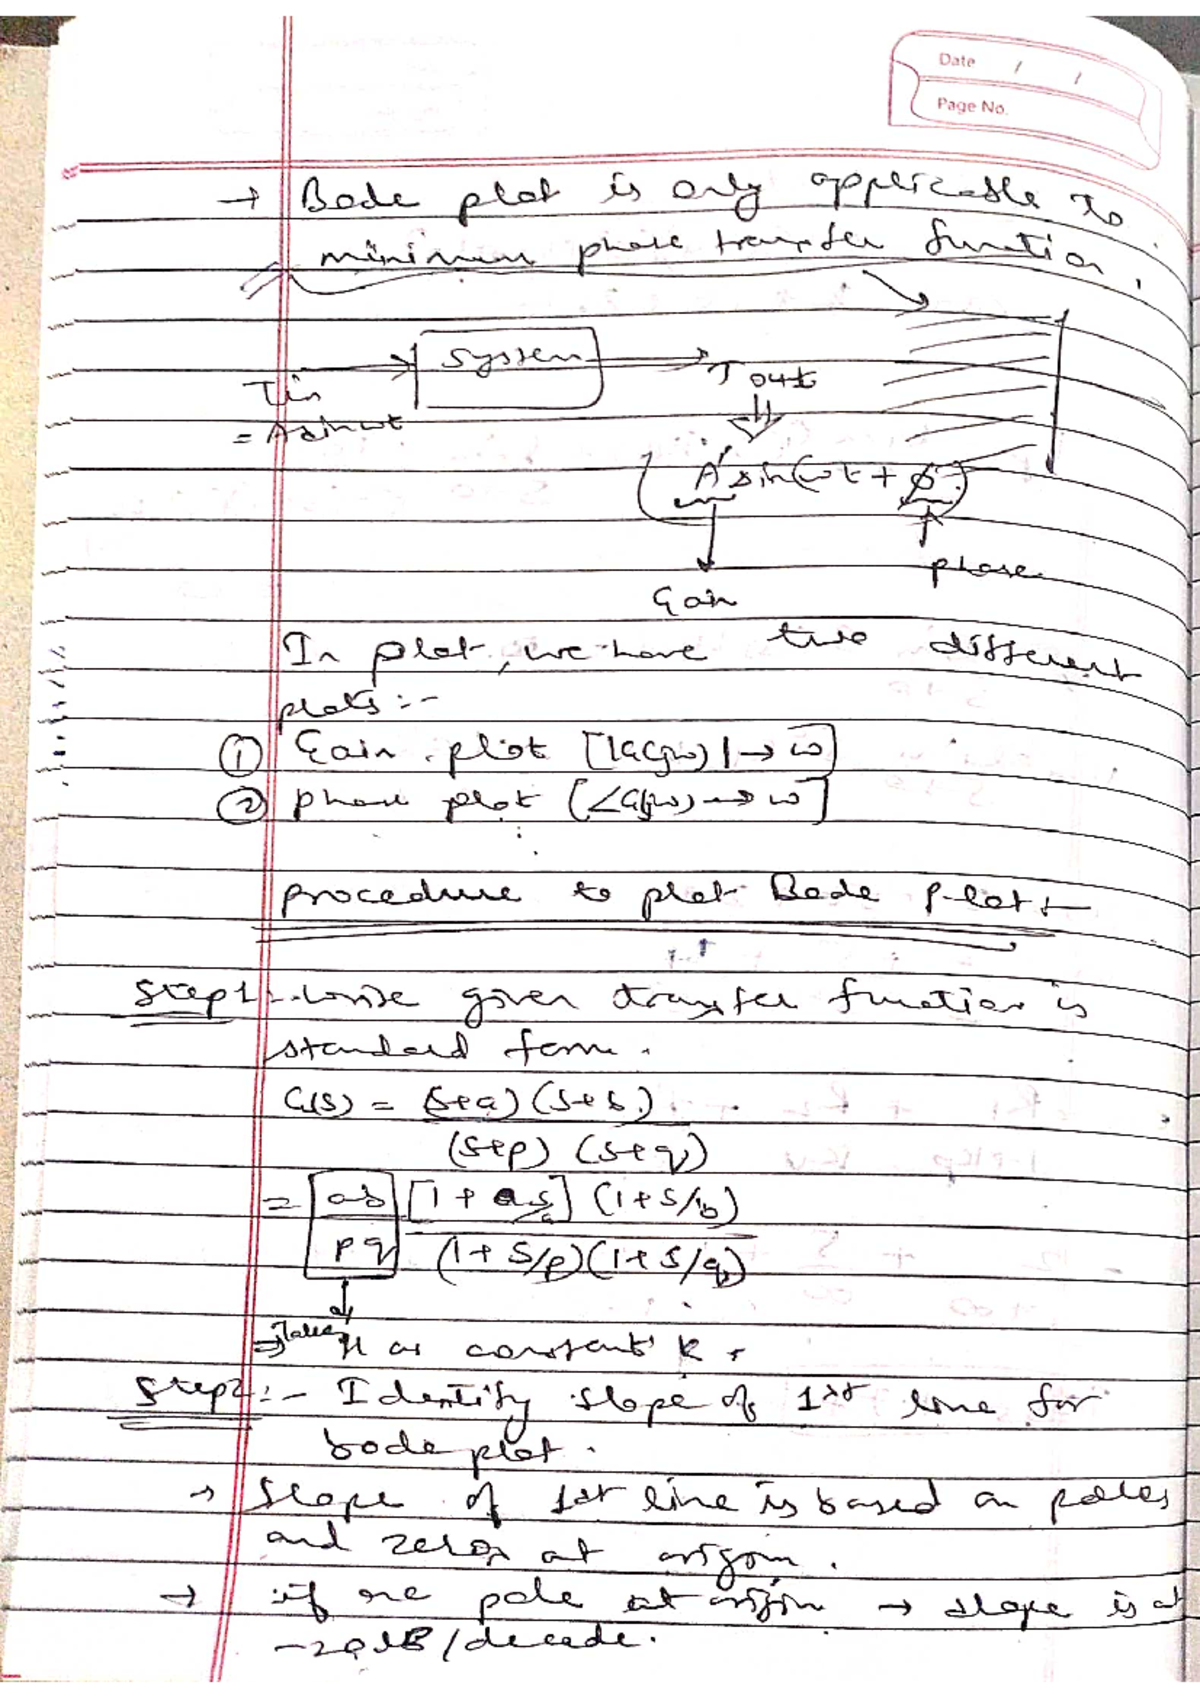 Date / /
Page No.
→ Bode plot is only applicable to
minimum phase transfer function,
System
Tin
= A sin wt
Tout
A' sin(wt + φ)
phase
Gain
In plot, we have two different
plots :-
① Gain plot [|G(jw)| → w]
② phase plot [∠G(jw) → w]
procedure to plot Bode Plot :-
Step1 :- Write given transfer function is
standard form.
G(s) = (s+a) (s+b)
(s+p) (s+q)
= ab [1 + s/a] (1+s/b)
pq (1+s/p)(1+s/q)
→ Take it as constant 'k.
Step2 :- Identify slope of 1st line for
bode plot.
→ Slope of 1st line is based on poles
and zeros at origin.
→ if one pole at origin → slope is at
-20dB/decade.